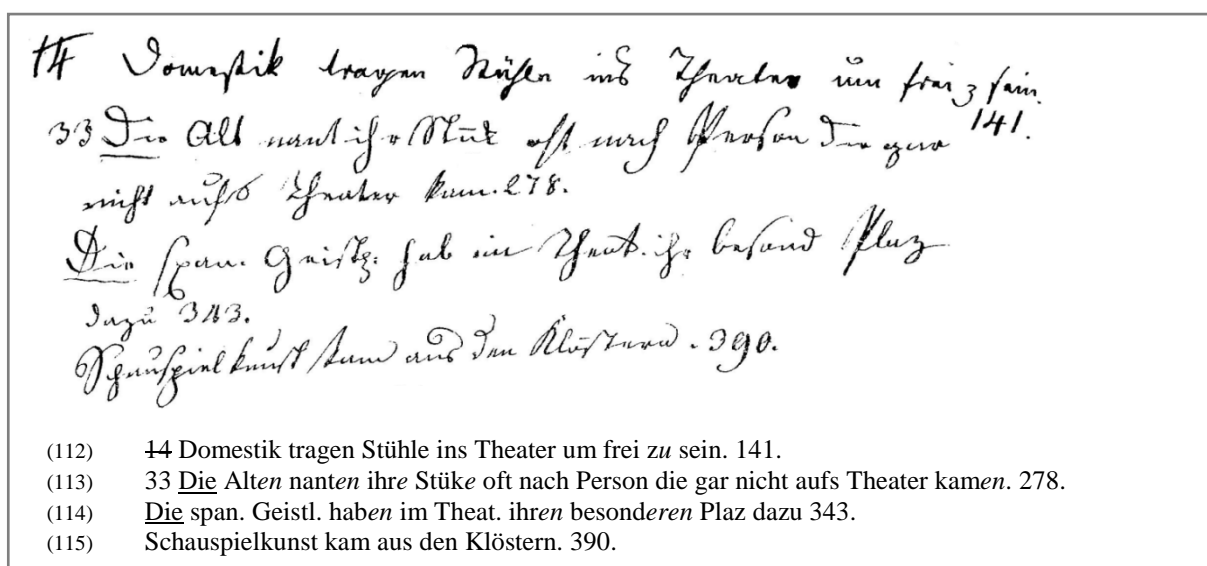 14 Domestik tragen Stühle ins Theater um frei z sein.
141.
33 Die Alt nant ihr Stük oft nach Person die gar
nicht aufs Theater kam. 278.
Die span. Geistl. hab im Theat. ihr besond Plaz
dazu 343.
Schauspielkunst kam aus den Klöstern. 390.
(112) 14 Domestik tragen Stühle ins Theater um frei zu sein. 141.
(113) 33 Die Alten nanten ihre Stüke oft nach Person die gar nicht aufs Theater kamen. 278.
(114) Die span. Geistl. haben im Theat. ihren besonderen Plaz dazu 343.
(115) Schauspielkunst kam aus den Klöstern. 390.